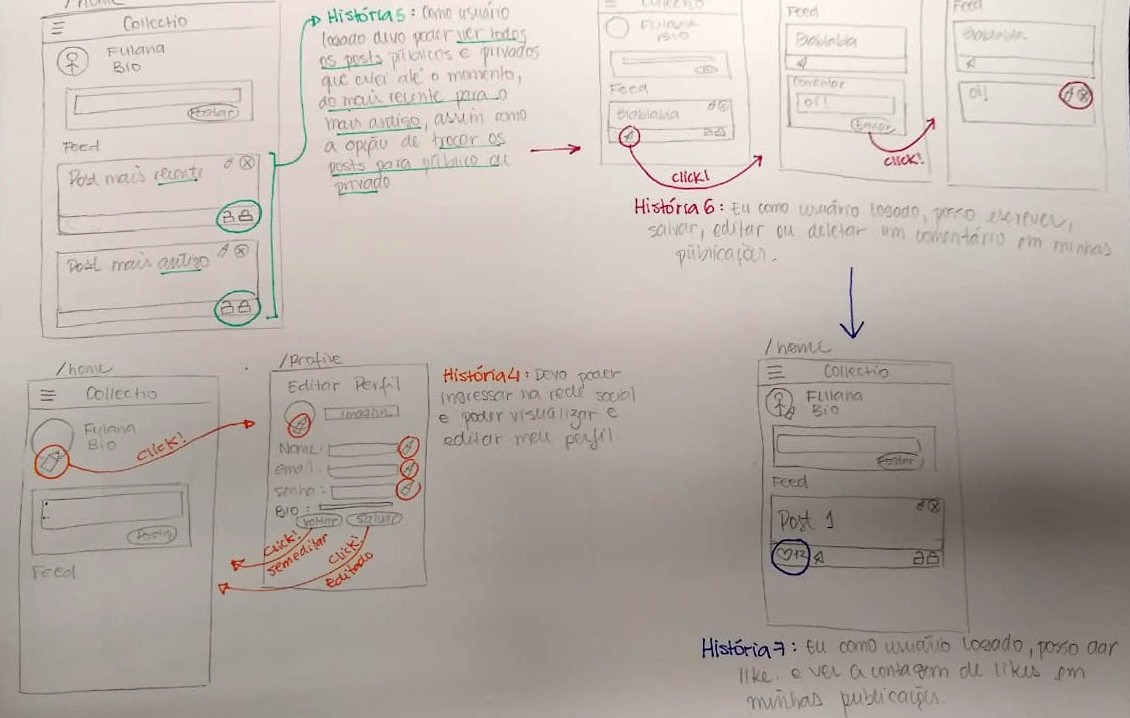 /home
Collectio
Fulana
Bio
Postar
Feed
Post mais recente
Post mais antigo
História 5: Como usuário
logado devo poder ver todos
os posts públicos e privados
que criei até o momento,
do mais recente para o
mais antigo, assim como
a opção de trocar os
posts para público ou
privado
Collectio
Fulana
Bio
Feed
Blablabla
click!
Feed
Blablabla
Comentar
Oi!
Enviar
click!
Feed
Blablabla
Oi!
História 6: Eu como usuário logado, posso escrever,
salvar, editar ou deletar um comentário em minhas
públicações.
/home
Collectio
Fulana
Bio
Click!
Postar
Feed
/profile
Editar Perfil
Nome:
email:
senha:
BIO:
voltar
salvar
Click!
sem editar
Click!
Editado
História 4: Devo poder
ingressar na rede social
e poder visualizar e
editar meu perfil.
/home
Collectio
Fulana
Bio
Postar
Feed
Post 1
12
História 7: Eu como usuário logado, posso dar
like. e ver a contagem de likes em
minhas publicações.